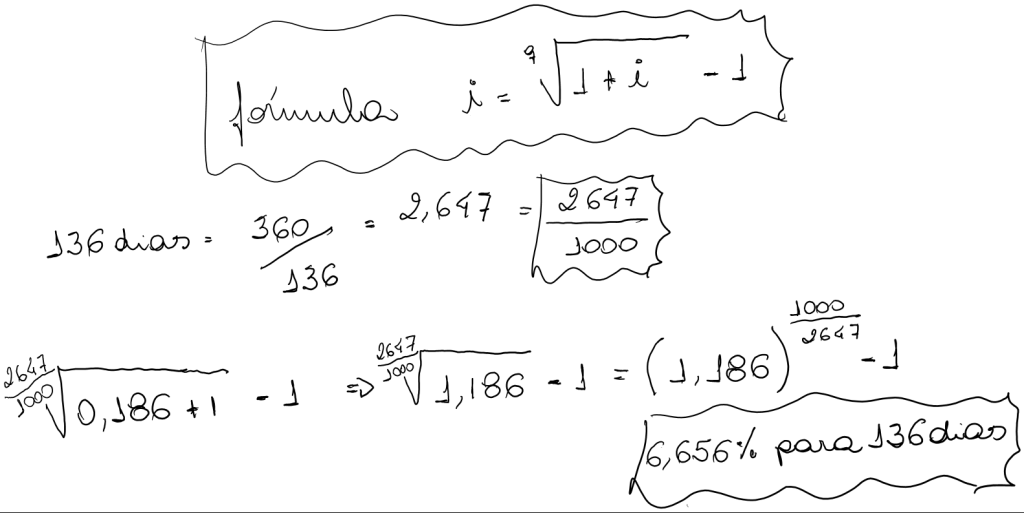 fórmula i = ⁹√(1 + i) - 1
136 dias = 360/136 = 2,647 = 2647/1000
2647/1000 √(0,186 + 1) - 1 => 2647/1000 √(1,186) - 1 = (1,186)^(1000/2647) - 1
6,656% para 136 dias